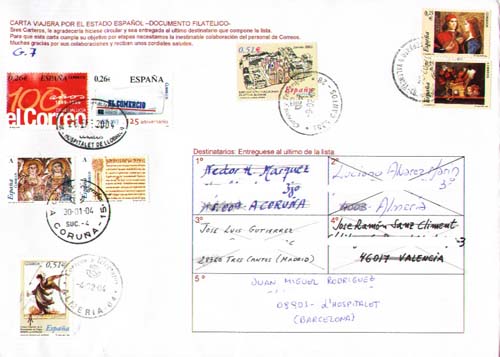 CARTA VIAJERA POR EL ESTADO ESPAÑOL -DOCUMENTO FILATELICO-
Sres Carteros, le agradecería hiciese circular y sea entregada al último destinatario que compone la lista.
Para que esta carta cumpla su objetivo por etapas necesitamos la inestimable colaboración del personal de Correos.
Muchas gracias por sus colaboraciones y reciban unos cordiales saludos.
G.7
0,26€ ESPAÑA
0,26€ ESPAÑA
100 años
el Correo
EL COMERCIO
125 ANIVERSARIO
HOSPITALET DE LLOBR
A
España
A
España
30-01-04
A CORUÑA-
SUC.-4
0,51€
España
ALMERIA
0,51€
España
0,25€
España
España
Destinatarios: Entreguese al ultimo de la lista
1º
Hector H. Marquez
15.000 A CORUÑA
2º
Luciano Alvarez
Almeria
3º
JOSE LUIS GUTIERREZ
28760 TRES CANTOS (MADRID)
4º
Jose Ramón Sanz Climent
46017 VALENCIA
5º
JUAN MIGUEL RODRIGUEZ
08901- d'HOSPITALET
(BARCELONA)